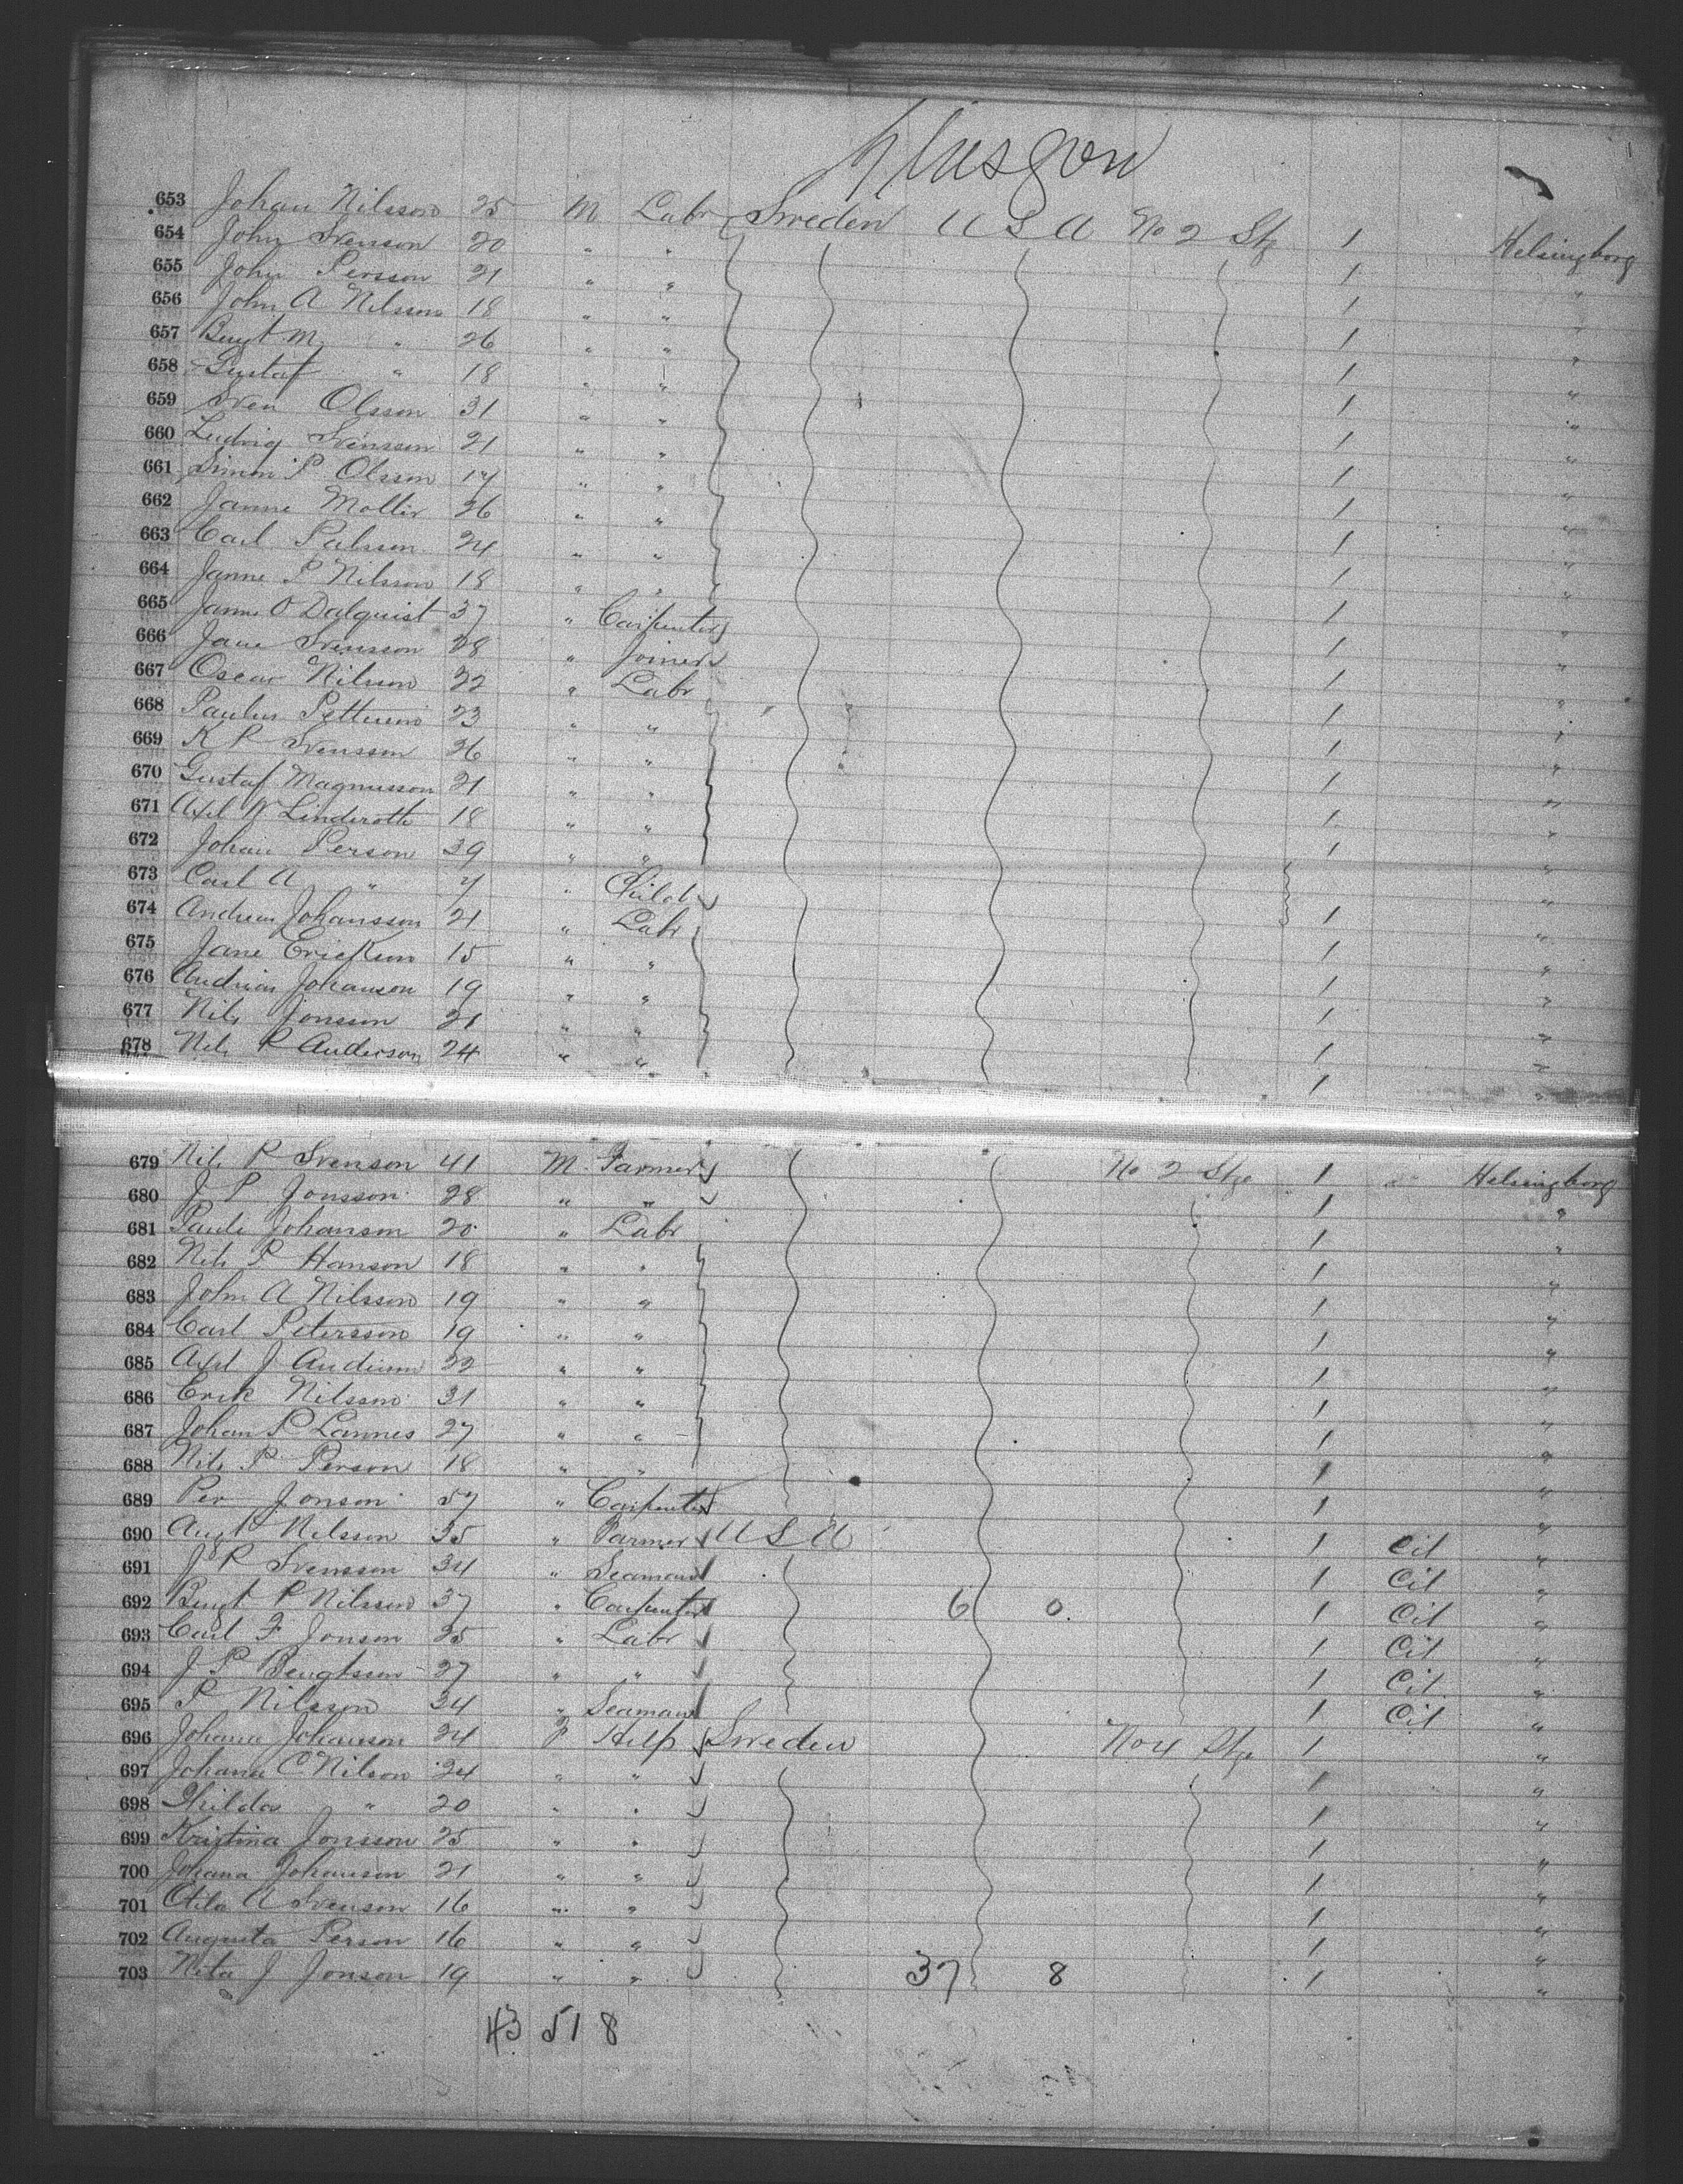 Glasgow
653 Johan Nilsson 25 M Labr Sweden U S A No 2 Stg 1 Helsingborg
654 John Svenson 20 " " 1 "
655 John Persson 21 " " 1 "
656 John A Nilsson 18 " " 1 "
657 Bengt M " 26 " " 1 "
658 Gustaf " 18 " " 1 "
659 Sven Olsson 31 " " 1 "
660 Ludvig Svensson 21 " " 1 "
661 Simon P Olsson 17 " " 1 "
662 Janne Moller 26 " " 1 "
663 Carl Palsson 24 " " 1 "
664 Janne P Nilsson 18 " " 1 "
665 Janne O Dalquist 37 " Carpenter 1 "
666 Jane Svensson 28 " Joiner 1 "
667 Oscar Nilsson 22 " Labr 1 "
668 Paulus 23 " " 1 "
669 K P Svensson 26 " " 1 "
670 Gustaf Magnusson 21 " " 1 "
671 Axel W Linderoth 18 " " 1 "
672 Johan Person 39 " " "
673 Carl A " 7 " Child 1 "
674 Andreas Johansson 21 " Labr 1 "
675 Jane Erickson 15 " " 1 "
676 Andrias Johanson 19 " " 1 "
677 Nils Jonsson 21 " " 1 "
678 Nils P Anderson 24 " " 1 "
679 Nils P Svenson 41 M Farmer No 2 Stge 1 Helsingborg
680 J P Jonsson 28 " " 1 "
681 Paul Johanson 20 " Labr 1 "
682 Nils P Hanson 18 " " 1 "
683 John A Nilsson 19 " " 1 "
684 Carl Petersson 19 " " 1 "
685 Axel J 22 " " 1 "
686 Erik Nilsson 31 " " 1 "
687 Johan P Lannes 27 " " 1 "
688 Nils P Person 18 " " 1 "
689 Per Jonson 57 " Carpenter 1 "
690 Augt Nilsson 35 " Farmer U S A 1 Cit "
691 J P Svensson 34 " Seaman 1 Cit "
692 Bengt P Nilsson 37 " Carpenter 6 0 1 Cit "
693 Carl F Jonson 25 " Labr 1 Cit "
694 J P Bengtsson 27 " " 1 Cit "
695 P Nilsson 34 " Seaman 1 Cit "
696 Johana Johanson 24 F Help Sweden No 4 Stge 1 "
697 Johana C Nilson 24 " " 1 "
698 Hilda " 20 " " 1 "
699 Kristina Jonsson 25 " " 1 "
700 Johana Johanson 21 " " 1 "
701 Otila A Svenson 16 " " 1 "
702 Augusta Person 16 " " 1 "
703 Neta J Jonson 19 " " 37 8 1 "
43 51 8